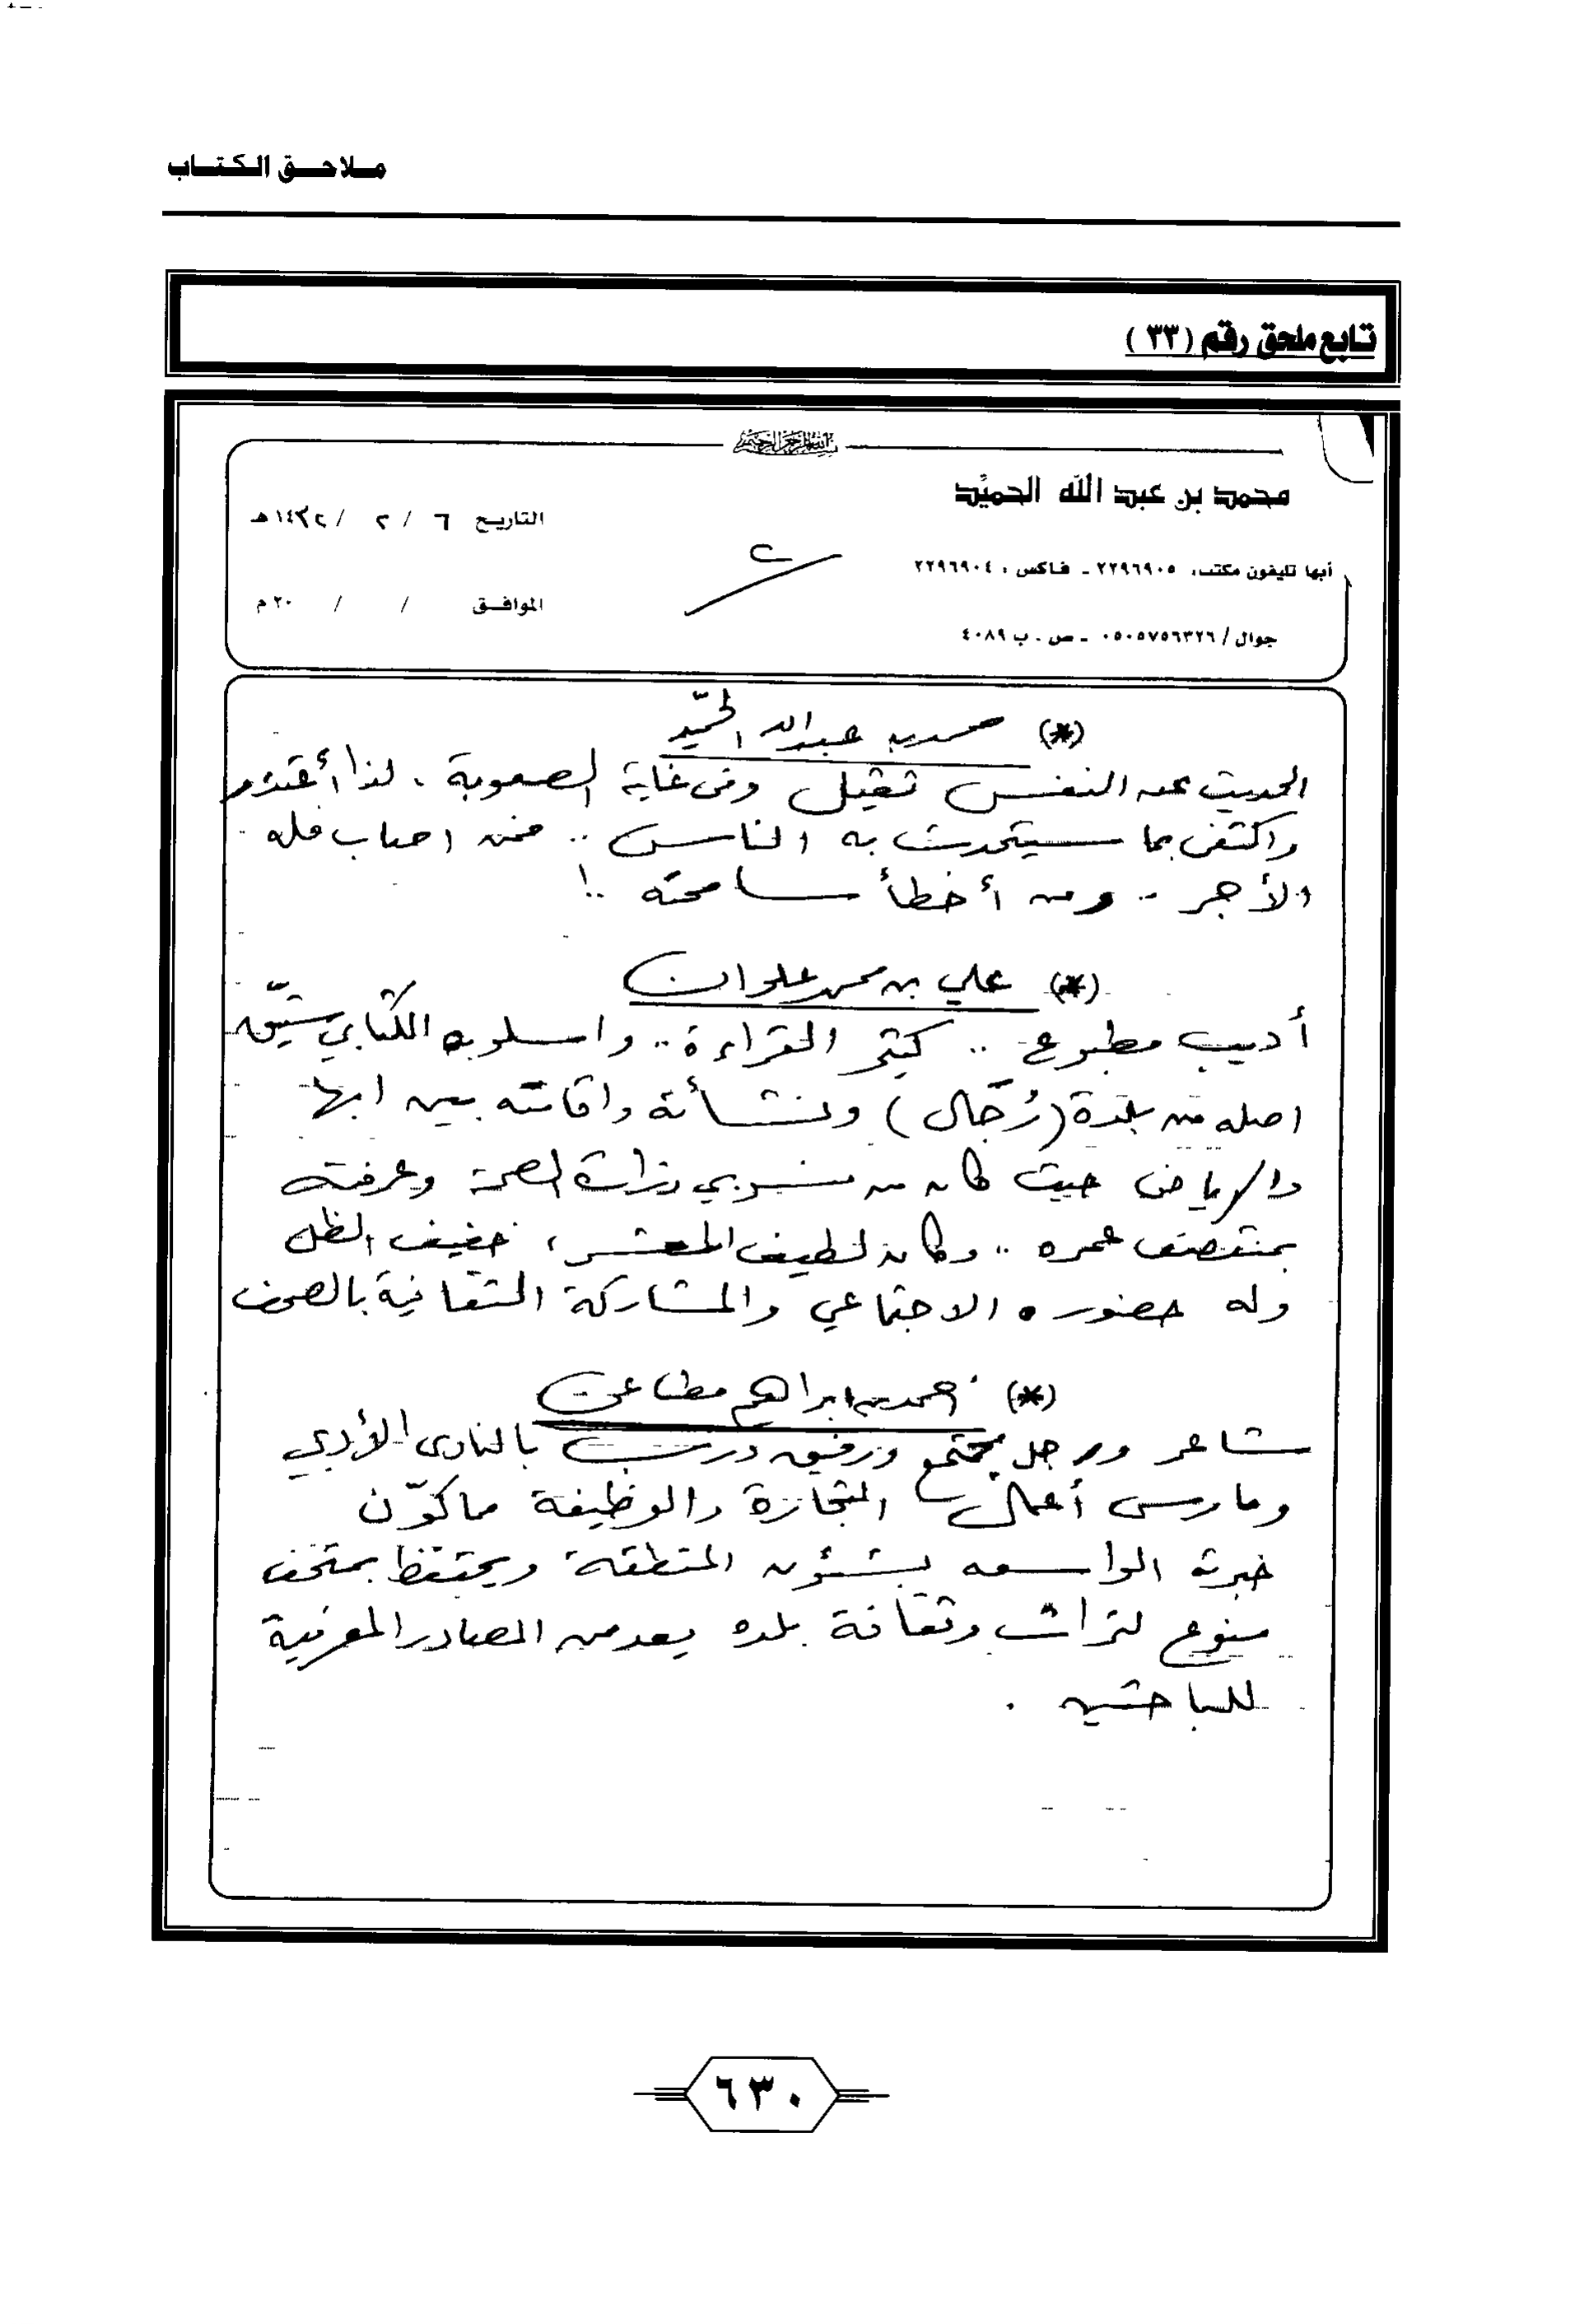 ملاحق الكتاب
تابع ملحق رقم (٣٣)
بسم الله الرحمن الرحيم
محمد بن عبد الله الحميّد
التاريخ ٦ / ٢ / ١٤٣٢هـ
أبها تليفون مكتب: ٢٢٩٦٩٠٥ - فاكس: ٢٢٩٦٩٠٤
الموافق / / ٢٠م
جوال / ٠٥٠٥٧٥٦٣٢٦ - ص.ب ٤٠٨٩
(*) محمد بن عبد الله الحميّد
الحديث عن النفس ثقيل وفي غاية الصعوبة . لذا أعتذر
واكتفي بما سيتحدث به الناس .. فمن اصاب فله
الأجر .. ومن أخطأ سامحته ..!
(*) علي بن محمد علوان
أديب مطبوع .. كثير القراءة .. واسلوبه الكتابي شيّق
اصله من بلدة (رُجّال) ونشأته واقامته بين ابها
والرياض حيث كان من منسوبي وزارة الصحة وعرفته
بمنتصف عمره .. وكان لطيف المعشر، خفيف الظل
وله حضوره الاجتماعي والمشاركة الثقافية بالصحف
(*) احمد بن ابراهيم مطاعن
شاعر ورجل مجتمع ورفيق درب بالنادي الأدبي
ومارس أعمال التجارة والوظيفة مما كوّن
خبرته الواسعه بشئون المنطقة ويحتفظ بمتحف
منوع لتراث وثقافة بلده يعد من المصادر المعرفية
للباحثين .
٦٣٠